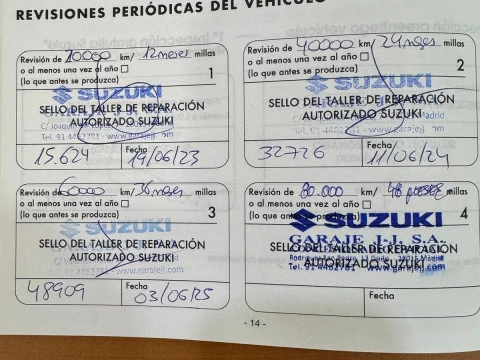 REVISIONES PERIÓDICAS DEL VEHÍCULO
Revisión de 10000 km/ 12 meses millas
o al menos una vez al año □
(lo que antes se produzca)
1
SUZUKI
SELLO DEL TALLER DE REPARACIÓN
AUTORIZADO SUZUKI
www.garajejj.com
15.624
Fecha
19/06/23
Revisión de 40000 km/ 24 meses millas
o al menos una vez al año □
(lo que antes se produzca)
2
SUZUKI
SELLO DEL TALLER DE REPARACIÓN
AUTORIZADO SUZUKI
Madrid
32726
Fecha
11/06/24
Revisión de 60000 km/ 36 meses millas
o al menos una vez al año □
(lo que antes se produzca)
3
SUZUKI
SELLO DEL TALLER DE REPARACIÓN
AUTORIZADO SUZUKI
www.garajejj.com
48909
Fecha
03/06/25
Revisión de 80.000 km/ 48 meses millas
o al menos una vez al año □
(lo que antes se produzca)
4
SUZUKI
GARAJE J-J, S.A.
SELLO DEL TALLER DE REPARACIÓN
AUTORIZADO SUZUKI
www.garajejj.com
Fecha
- 14 -